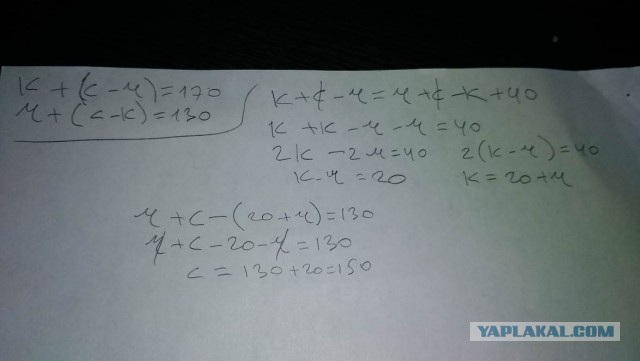 к + (с - ч) = 170
ч + (с - к) = 130
к + с - ч = ч + с - к + 40
к + к - ч - ч = 40
2к - 2ч = 40   2(к - ч) = 40
к - ч = 20   к = 20 + ч
ч + с - (20 + ч) = 130
ч + с - 20 - ч = 130
с = 130 + 20 = 150
YAPLAKAL.COM